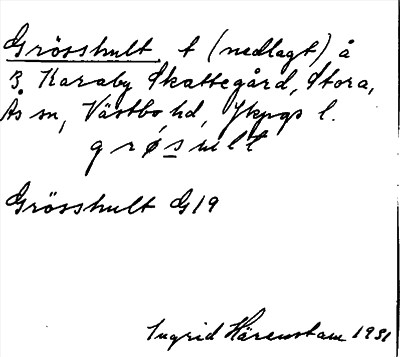 Grösshult t (nedlagt) å
3. Karaby Skattegård, Stora,
Ås sn, Västbo hd, Jkpgs l.
grø̀sult
Grösshult G19
Ingrid Härenstam 1931